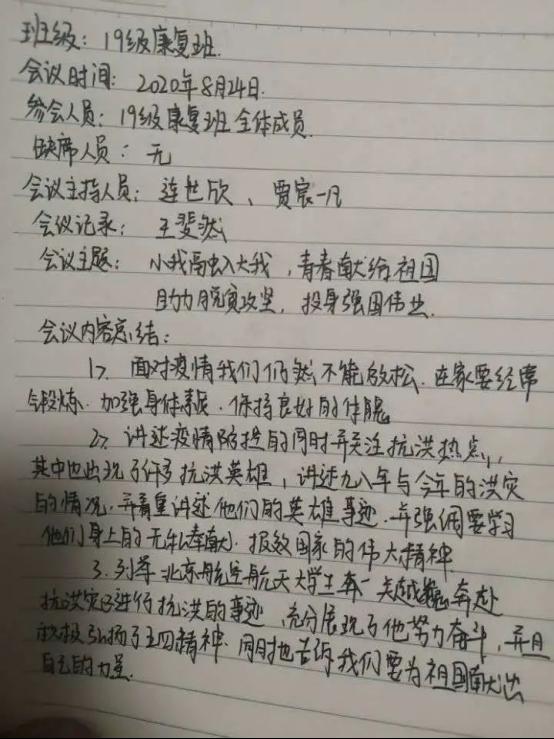 班级：19级康复班.
会议时间：2020年8月24日.
参会人员：19级康复班全体成员.
缺席人员：无
会议主持人员：连世欣、贾宸一凡
会议记录：王斐然
会议主题：小我融入大我，青春献给祖国
助力脱贫攻坚，投身强国伟业.
会议内容总结：
1>. 面对疫情我们仍然不能放松.在家要经常
锻炼.加强身体素质.保持良好的体魄
2>. 讲述疫情防控的同时并关注抗洪热点,
其中也出现了许多抗洪英雄，讲述九八年与今年的洪灾
的情况.并着重讲述他们的英雄事迹.并强调要学习
他们身上的无私奉献.报效国家的伟大精神
3.列举北京航空航天大学生 奔赴
抗洪灾区进行抗洪的事迹，充分展现了他努力奋斗，并且
积极弘扬了五四精神.同时也告诉我们要为祖国献出
自己的力量.